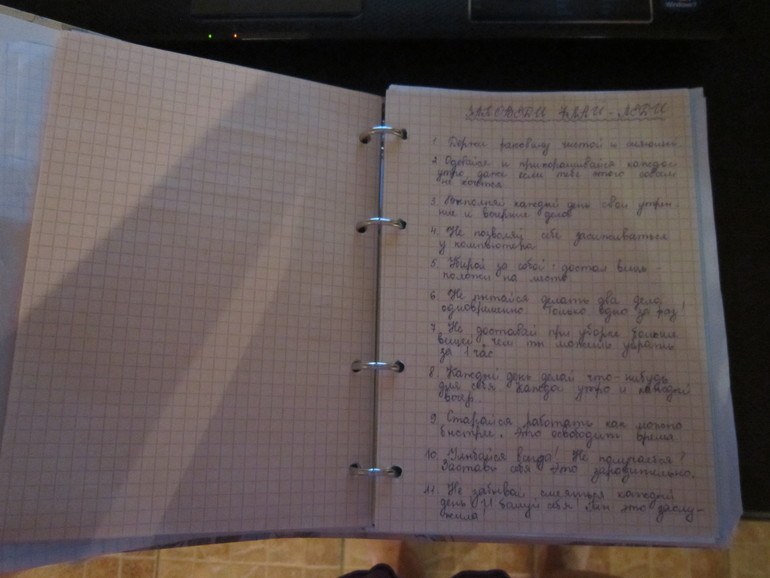 ЗАПОВЕДИ ФЛАЙ-ЛЕДИ
1. Держи раковину чистой и сияющей.
2. Одевайся и прихорашивайся каждое
утро, даже если тебе этого совсем
не хочется
3. Выполняй каждый день свои утрен-
ние и вечерние дела
4. Не позволяй себе засиживаться
у компьютера
5. Убирай за собой: достал вещь -
положи на место
6. Не пытайся делать два дела
одновременно. Только одно за раз!
7. Не доставай при уборке больше
вещей, чем ты можешь убрать
за 1 час
8. Каждый день делай что-нибудь
для себя. Каждое утро и каждый
вечер.
9. Старайся работать как можно
быстрее. Это освободит время
10. Улыбайся всегда! Не получается?
Заставь себя. Это заразительно.
11. Не забывай смеяться каждый
день. И балуй себя. Ты это заслу-
жила